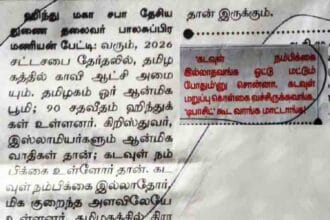 ஹிந்து மகா சபா தேசிய
துணை தலைவர் பாலசுப்பிர
மணியன் பேட்டி: வரும், 2026
சட்டசபை தேர்தலில், தமிழ
கத்தில் காவி ஆட்சி அமை
யும். தமிழகம் ஓர் ஆன்மிக
பூமி; 90 சதவீதம் ஹிந்துக்
கள் உள்ளனர். கிறிஸ்துவர்,
இஸ்லாமியர்களும் ஆன்மிக
வாதிகள் தான்; கடவுள் நம்
பிக்கை உள்ளோர் தான். கட
வுள் நம்பிக்கை இல்லாதோர்,
மிக குறைந்த அளவிலேயே
உள்ளனர். தமிழகத்தில் திரா
தான் இருக்கும்.
'கடவுள் நம்பிக்கை
இல்லாதவங்க ஓட்டு மட்டும்
போதும்'னு சொன்னா, கடவுள்
மறுப்பு கொள்கை வச்சிருக்கவங்க
'டிபாசிட்' கூட வாங்க மாட்டாங்க!